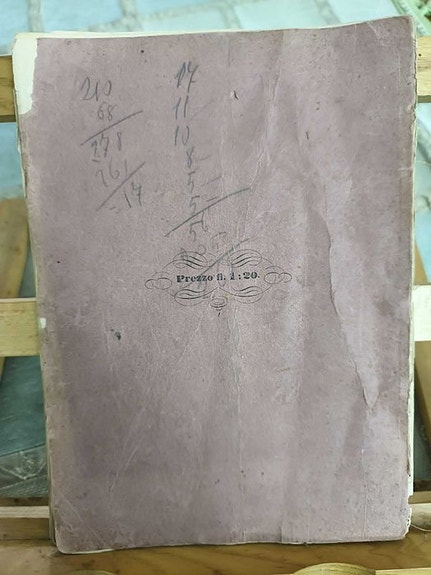 210
68
278
261
14
11
10
8
5
5
Prezzo fi. 1:20.